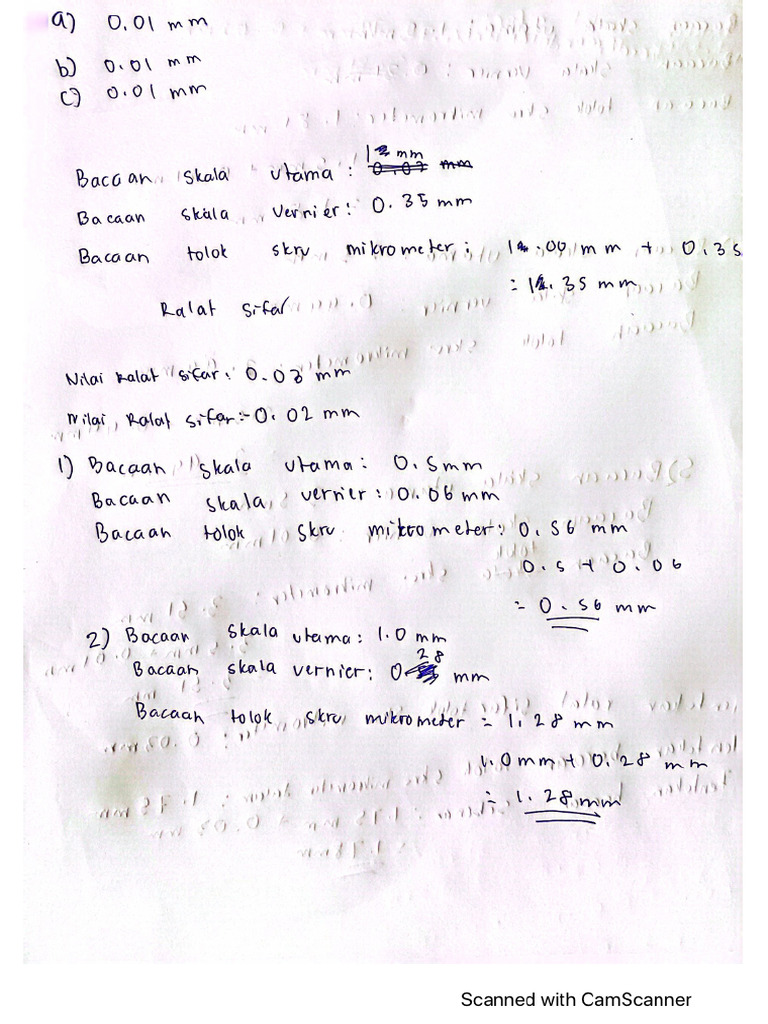 a) 0.01 mm
b) 0.01 mm
c) 0.01 mm
12 mm
Bacaan skala utama: 0.03 mm
Bacaan skala vernier: 0.35 mm
Bacaan tolok skru mikrometer: 12.00 mm + 0.35
= 12.35 mm
Ralat sifar
Nilai Ralat sifar: 0.03 mm
Nilai Ralat sifar: -0.02 mm
1) Bacaan skala utama: 0.5mm
Bacaan skala vernier: 0.06 mm
Bacaan tolok skru mikrometer: 0.56 mm
0.5 + 0.06
= 0.56 mm
2) Bacaan skala utama: 1.0 mm
Bacaan skala vernier: 0.28 mm
Bacaan tolok skru mikrometer = 1.28 mm
1.0mm + 0.28 mm
= 1.28mm
Scanned with CamScanner